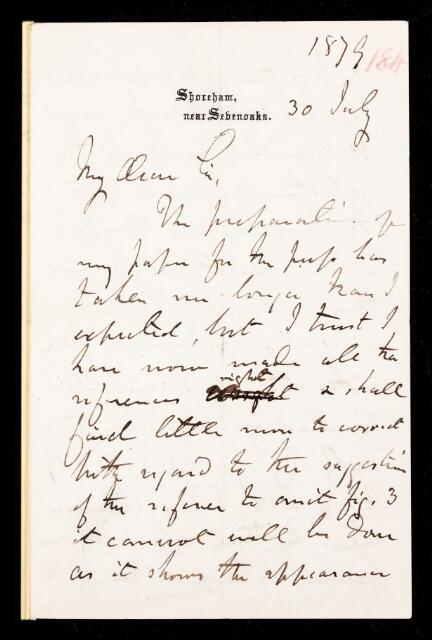 1879 184
Shoreham,
near Sevenoaks.
30 July
My Dear Sir,
The preparation of
my paper for the press has
taken me longer than I
expected, but I trust I
have now made all the
right
references & shall
find little more to correct
With regard to the suggestion
of the referee to omit fig. 3
it cannot well be done
as it shows the appearance